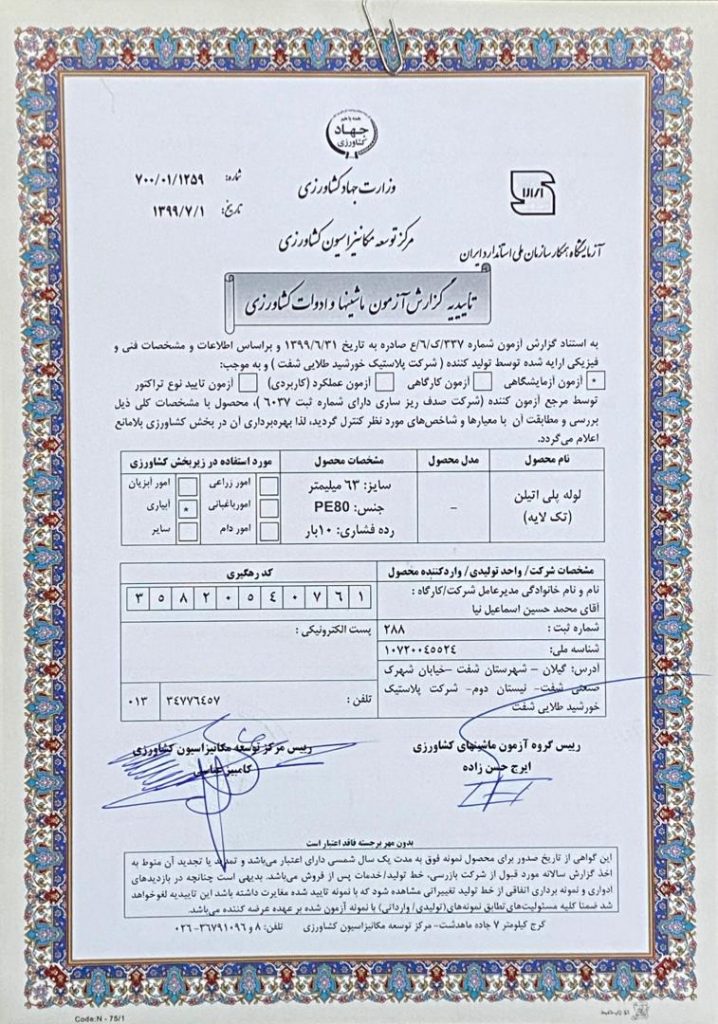 همه با هم
جهاد
کشاورزی
شماره: ۷۰۰/۰۱/۱۲۵۹
تاریخ: ۱۳۹۹/۷/۱
وزارت جهاد کشاورزی
مرکز توسعه مکانیزاسیون کشاورزی
آزمایشگاه همکار سازمان ملی استاندارد ایران
تاییدیه گزارش آزمون ماشینها و ادوات کشاورزی
به استناد گزارش آزمون شماره ۳۳۷/ک/۶/ع صادره به تاریخ ۱۳۹۹/۶/۳۱ و براساس اطلاعات و مشخصات فنی و
فیزیکی ارایه شده توسط تولید کننده ( شرکت پلاستیک خورشید طلایی شفت ) و به موجب:
* آزمون آزمایشگاهی آزمون کارگاهی آزمون عملکرد (کاربردی) آزمون تایید نوع تراکتور
توسط مرجع آزمون کننده (شرکت صدف ریز ساری دارای شماره ثبت ۶۰۳۷ )، محصول با مشخصات کلی ذیل
بررسی و مطابقت آن با معیارها و شاخص‌های مورد نظر کنترل گردید، لذا بهره‌برداری آن در بخش کشاورزی بلامانع
اعلام می‌گردد.
نام محصول مدل محصول مشخصات محصول مورد استفاده در زیربخش کشاورزی
لوله پلی اتیلن
(تک لایه)
–
سایز: ۶۳ میلیمتر
جنس: PE80
رده فشاری: ۱۰بار
امور زراعی امور آبزیان
امورباغبانی آبیاری *
امور دام سایر
مشخصات شرکت/ واحد تولیدی/ واردکننده محصول
نام و نام خانوادگی مدیرعامل شرکت/کارگاه :
آقای محمد حسین اسماعیل نیا
شماره ثبت : ۲۸۸
شناسه ملی: ۱۰۷۲۰۰۴۵۵۲۴
آدرس: گیلان – شهرستان شفت –خیابان شهرک
صنعتی شفت– نیستان دوم– شرکت پلاستیک
خورشید طلایی شفت
کد رهگیری
۳ ۵ ۸ ۲ ۰ ۵ ۴ ۰ ۷ ۶ ۱
پست الکترونیکی:
تلفن : ۳۴۷۷۶۴۵۷ ۰۱۳
رییس گروه آزمون ماشینهای کشاورزی
ایرج حسن زاده
رییس مرکز توسعه مکانیزاسیون کشاورزی
کامبیز عباسی
بدون مهر برجسته فاقد اعتبار است
این گواهی از تاریخ صدور برای محصول نمونه فوق به مدت یک سال شمسی دارای اعتبار می‌باشد و تمدید یا تجدید آن منوط به
اخذ گزارش سالانه مورد قبول از شرکت بازرسی، خط تولید/خدمات پس از فروش می‌باشد. بدیهی است چنانچه در بازدیدهای
ادواری و نمونه برداری اتفاقی از خط تولید تغییراتی مشاهده شود که با نمونه تایید شده مغایرت داشته باشد این تاییدیه لغوخواهد
شد ضمنا کلیه مسئولیت‌های تطابق نمونه‌های (تولیدی/ وارداتی) با نمونه آزمون شده بر عهده عرضه کننده می‌باشد.
کرج کیلومتر ۷ جاده ماهدشت- مرکز توسعه مکانیزاسیون کشاورزی تلفن: ۸ و ۳۶۷۹۱۰۹۶-۰۲۶
Code:N - 75/1